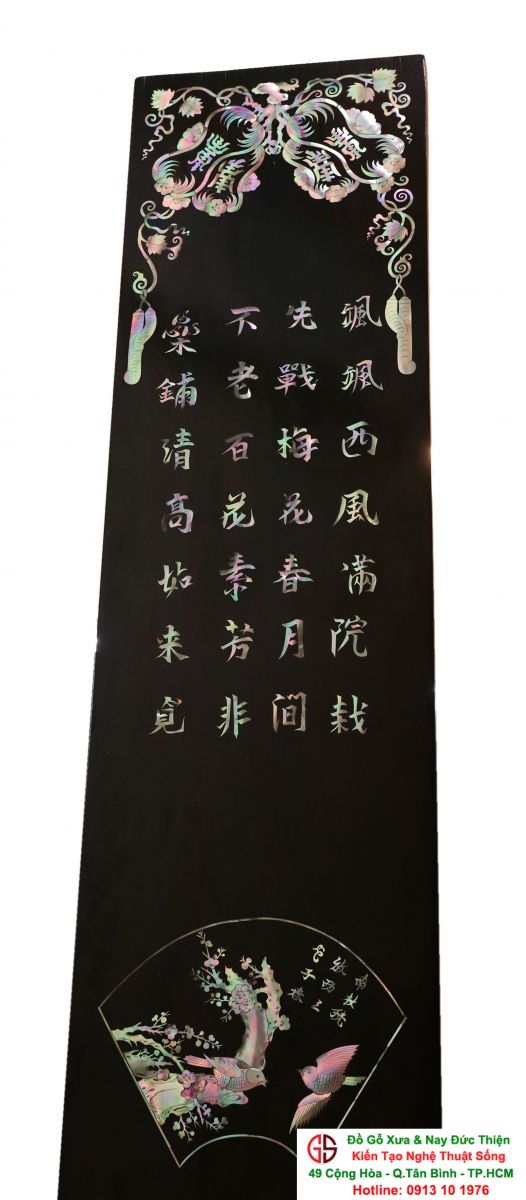 颯颯西風滿院栽
先戰梅花春月間
不老百花素芳非
樂鋪清高如来覓
Đồ Gỗ Xưa & Nay Đức Thiện
Kiến Tạo Nghệ Thuật Sống
49 Cộng Hòa - Q.Tân Bình - TP.HCM
Hotline: 0913 10 1976